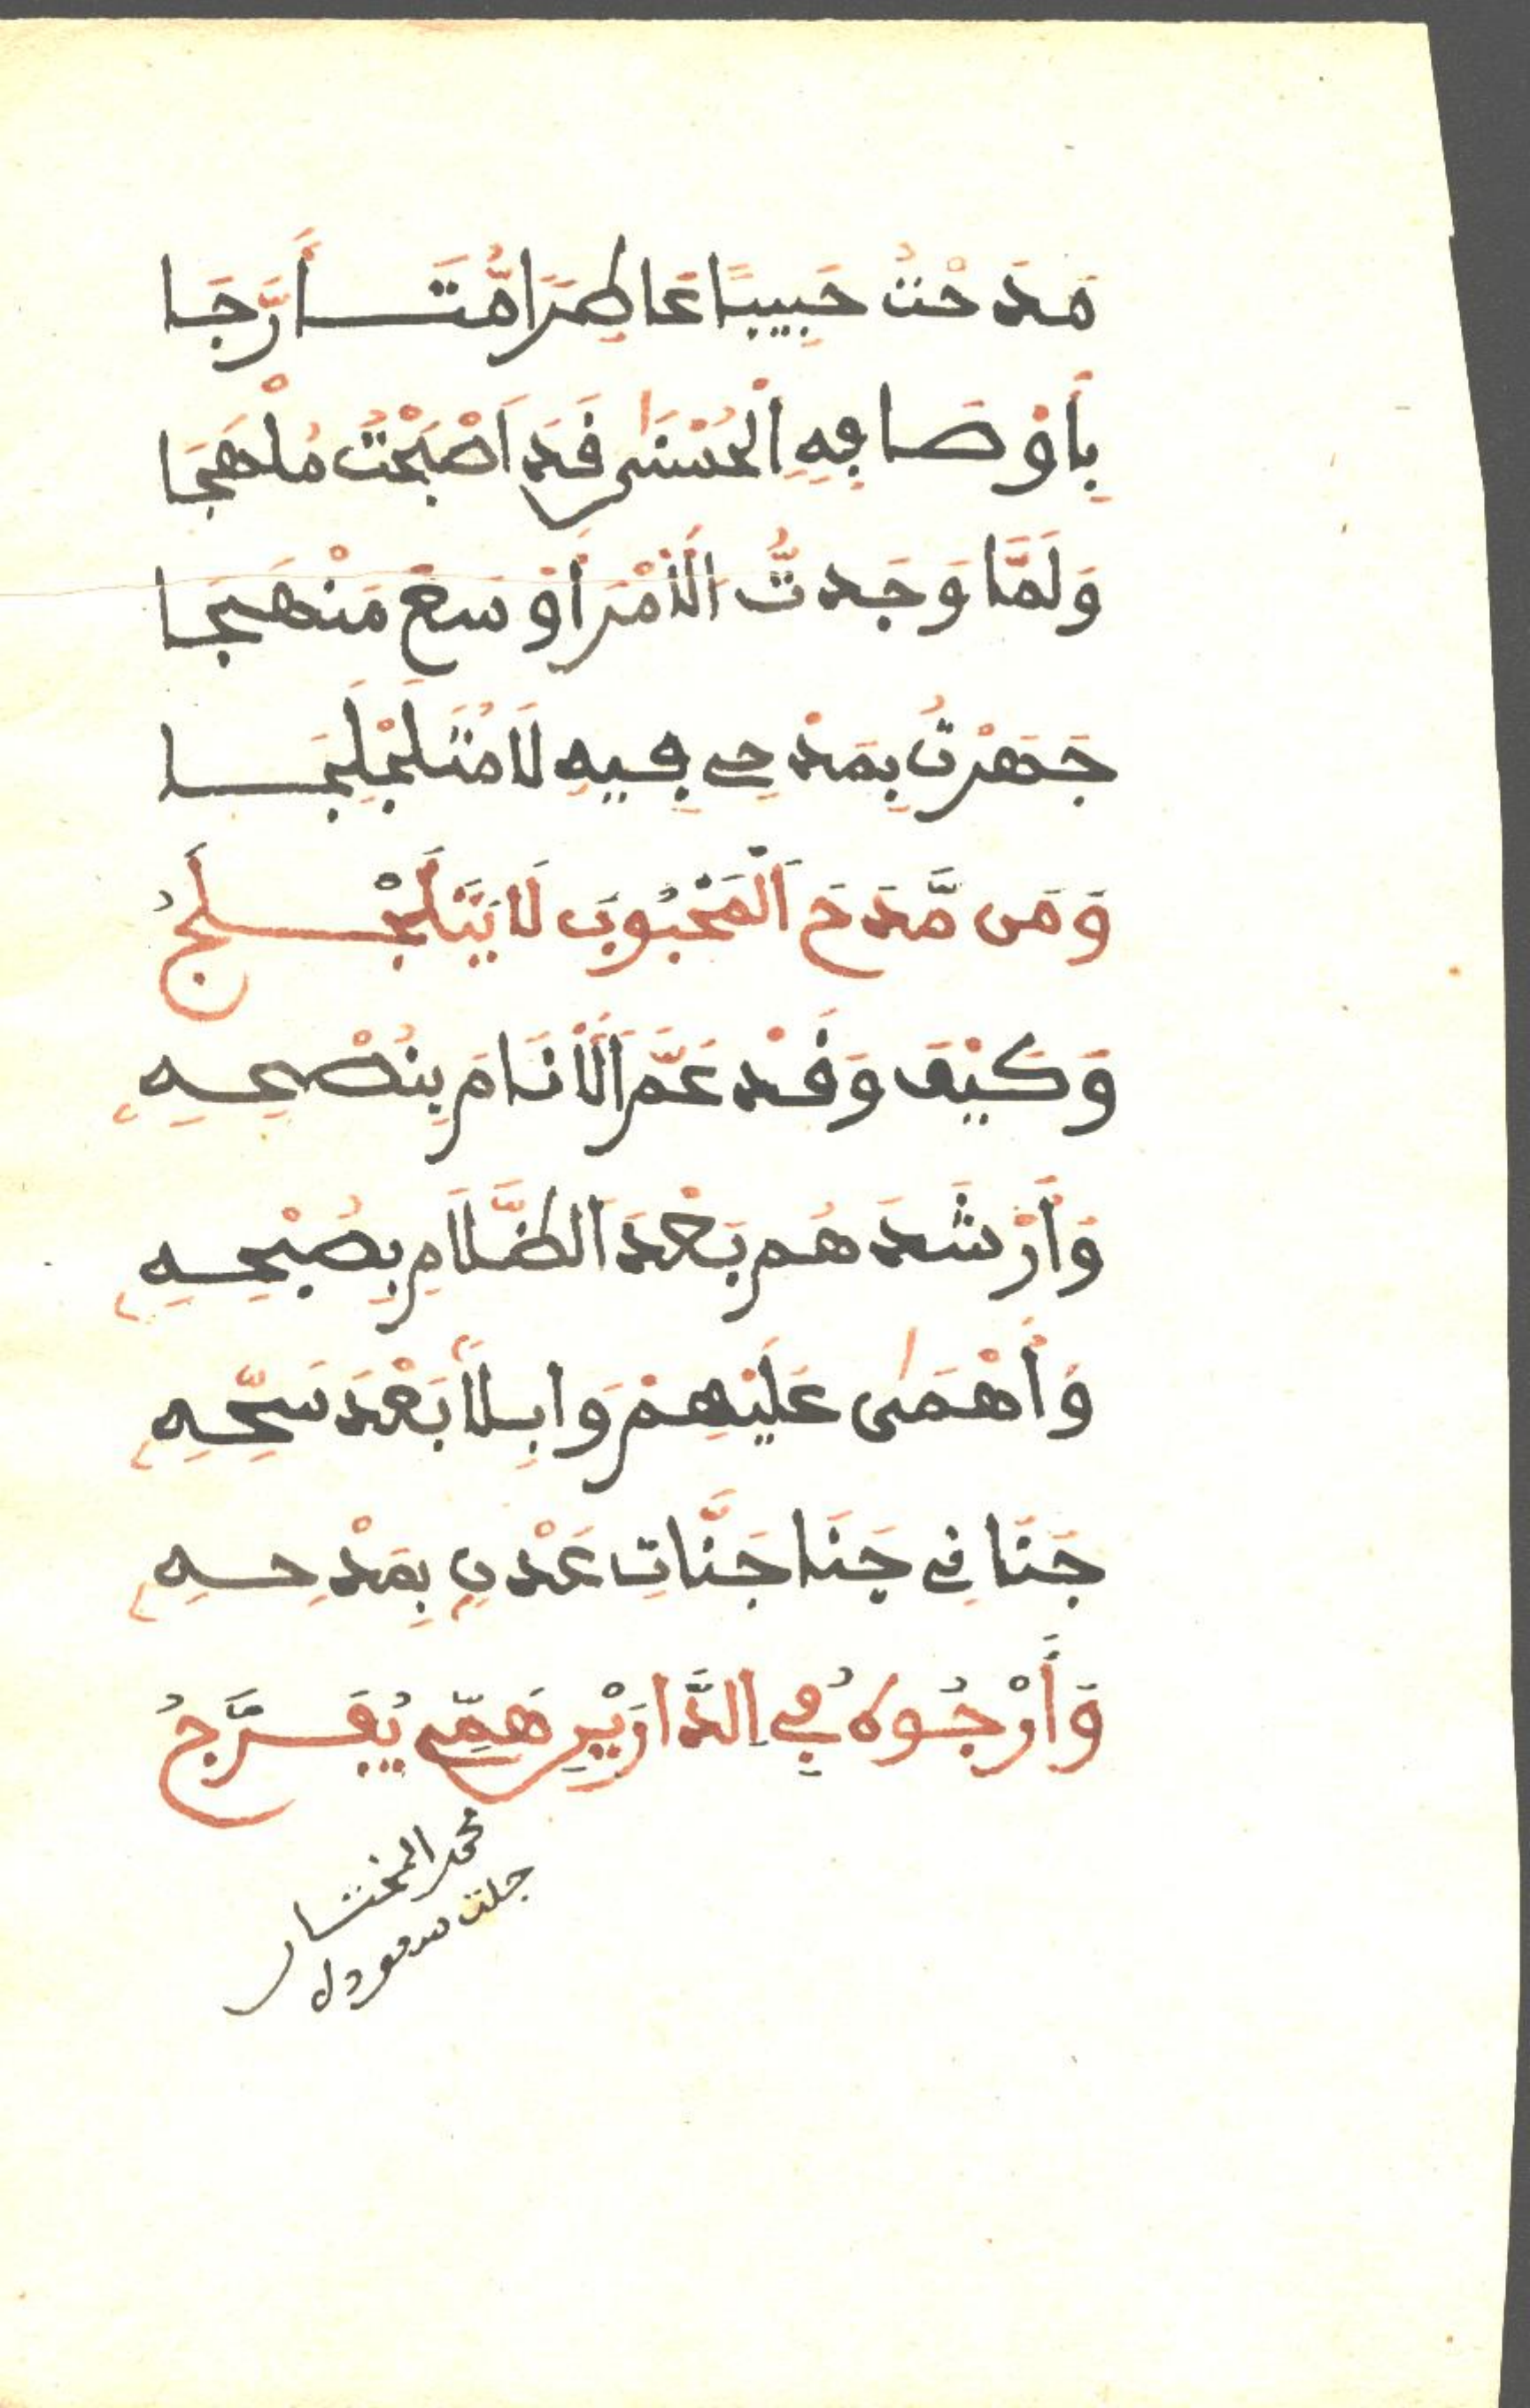 مَدَحْتُ حَبِيبًا عَاطِرًا مُّتَأَرِّجَا
بِأَوْصَافِهِ الْحُسْنَىٰ فَقَدَ اَصْبَحْتُ مُلْهَجَا
وَلَمَّا وَجَدتُّ الْأَمْرَ أَوْسَعَ مَنْهَجَا
جَهَرْتُ بِمَدْحِي فِيهِ لَا مُتَلَجْلِجَا
وَمَن مَّدَحَ الْمَحْبُوبَ لَا يَتَلَجْلَجُ
وَكَيْفَ وَقَدْ عَمَّ الْأَنَامَ بِنُصْحِهِ
وَأَرْشَدَهُم بَعْدَ الظَّلَامِ بِصُبْحِهِ
وَأَهْمَىٰ عَلَيْهِمْ وَابِلًا بَعْدَ سَحِّهِ
جَنَا فِي جَنَا جَنَّاتِ عَدْنٍ بِمَدْحِهِ
وَأَرْجُوهُ فِي الدَّارَيْنِ هَمِّي يُفَرِّجُ
محمد المختار
جلت